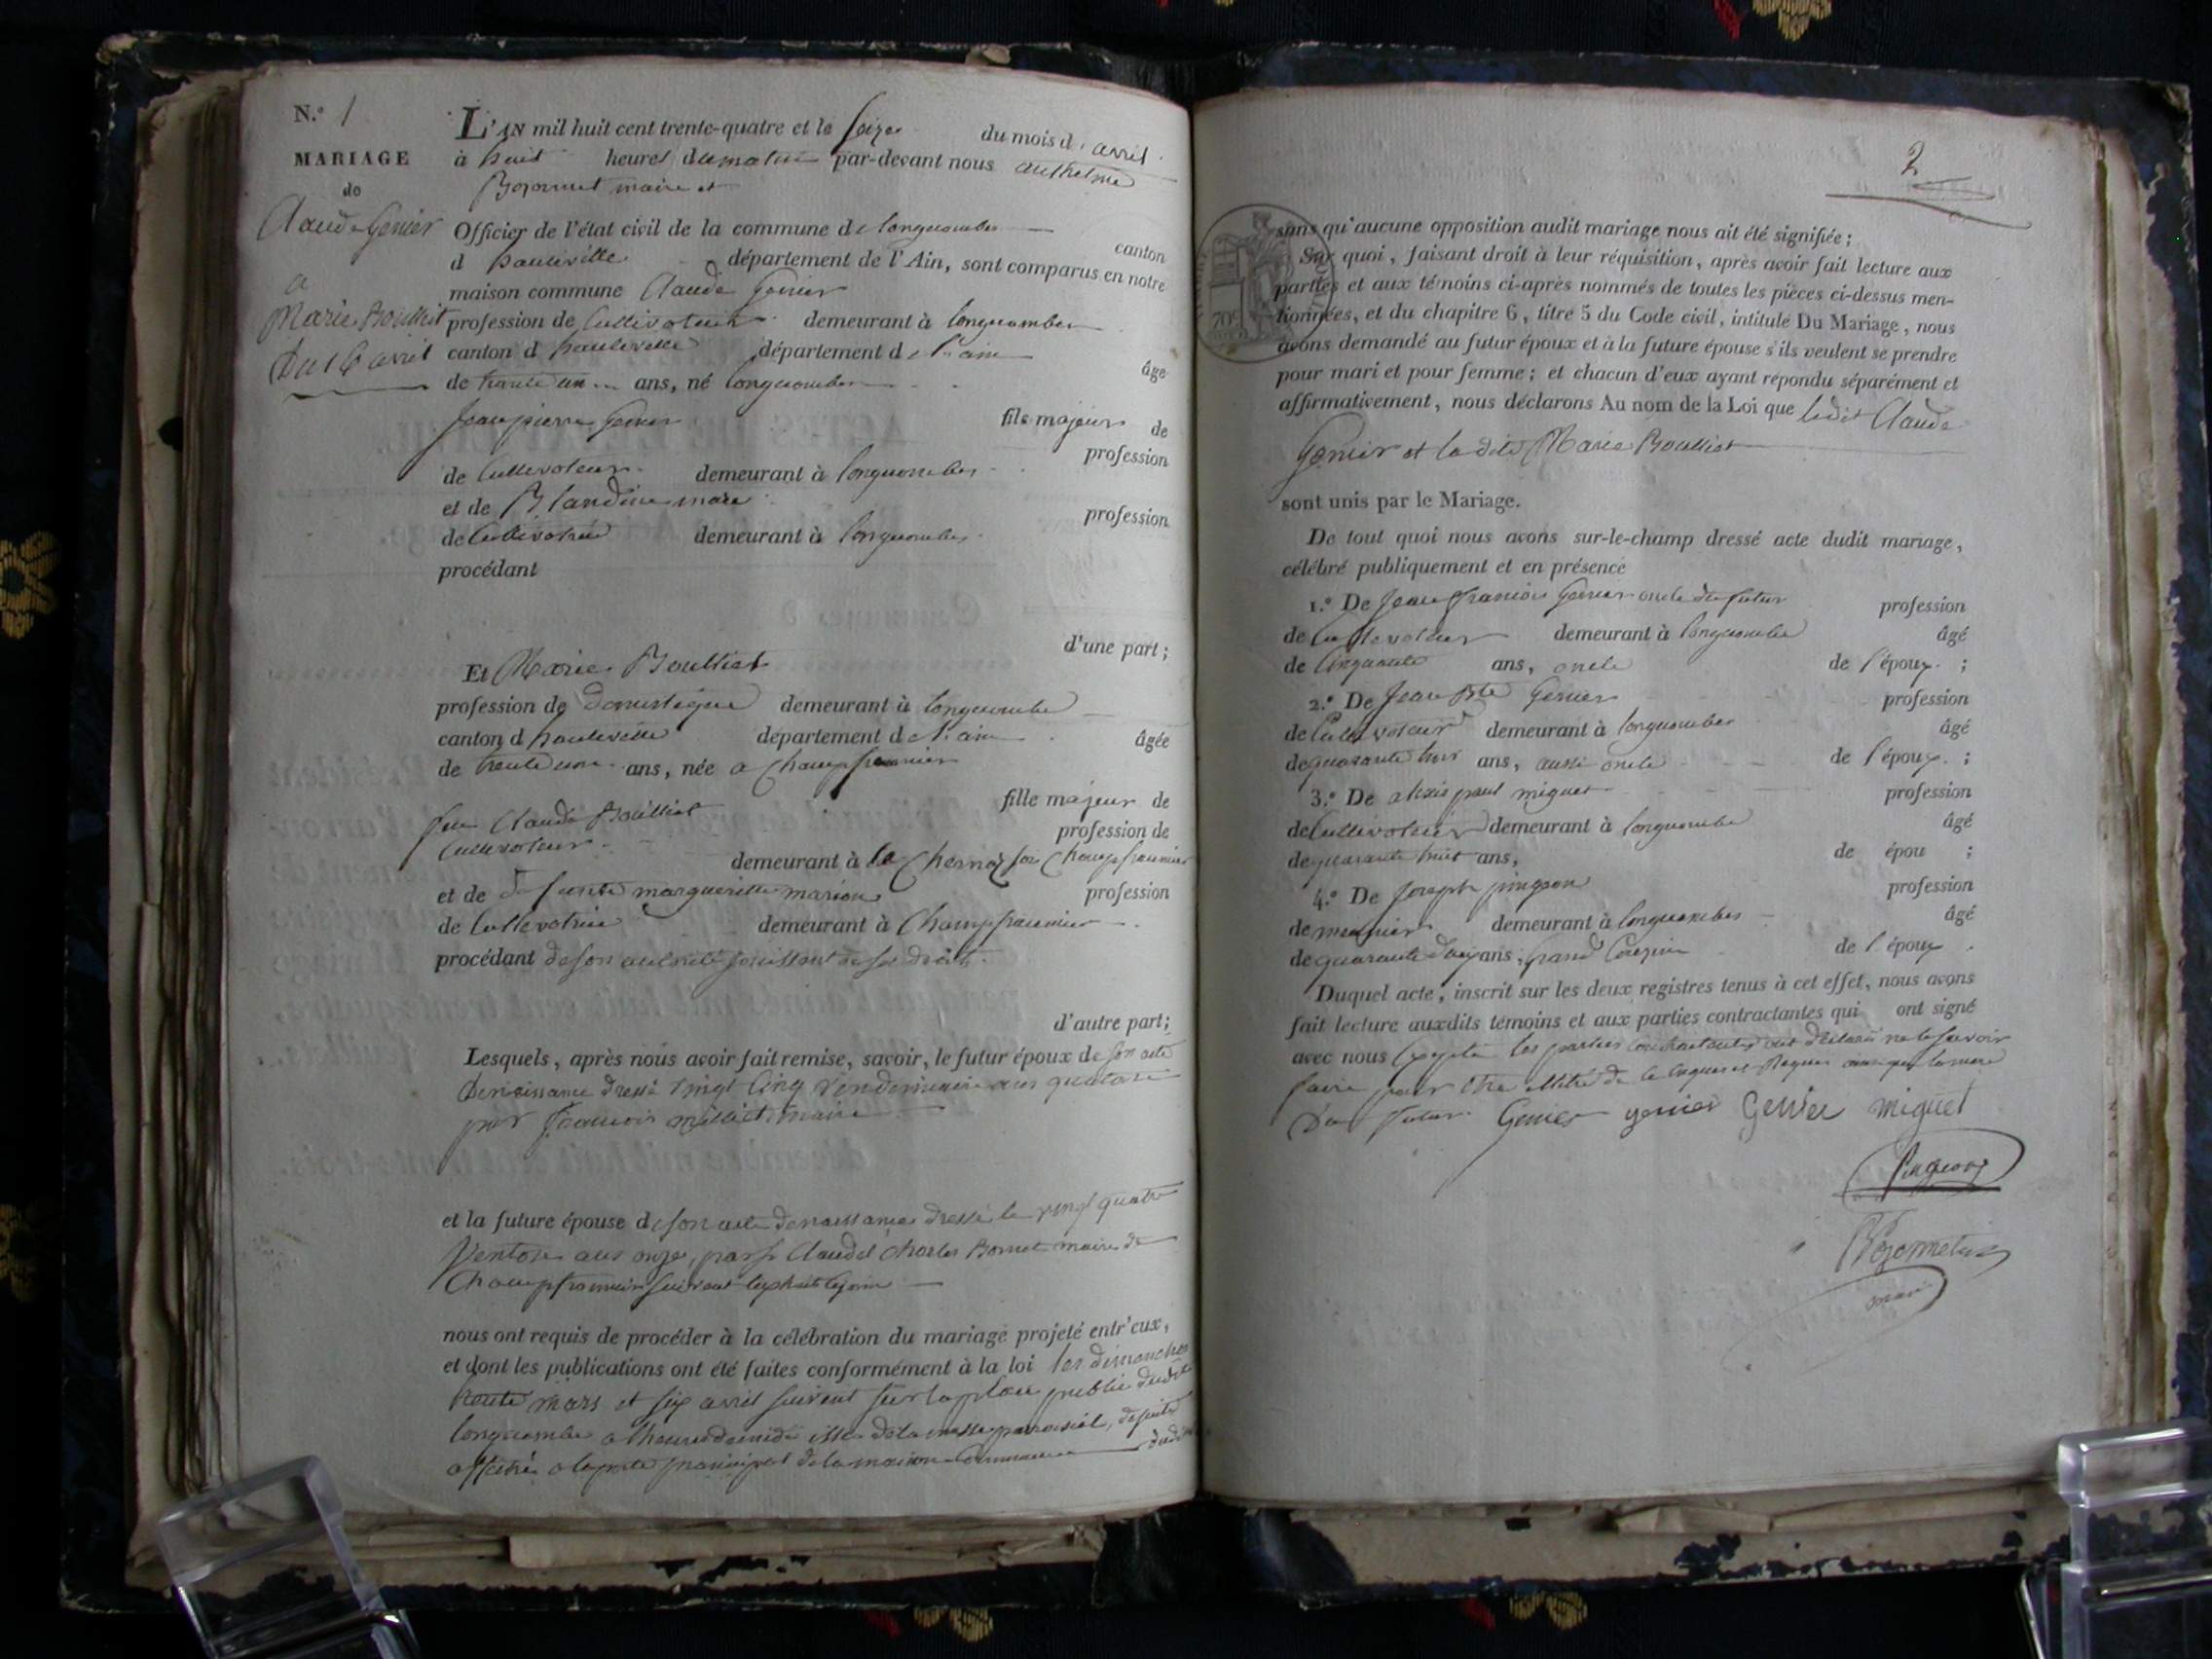 N.° 1
MARIAGE
de
Claude Genier
a
Marie Boulliet
Du 16 avril
L'AN mil huit cent trente-quatre et le seize du mois d'avril
à huit heures du matin par-devant nous anthelme
maire et
Officier de l'état civil de la commune de longecombe
canton
d hauteville département de l'Ain, sont comparus en notre
maison commune Claude Genier
profession de Cultivateur demeurant à longecombe
canton d hauteville département de l'ain
âgé
de trente un ans, né longecombe
fils majeur de
Jean pierre Genier
profession
de Cultivateur demeurant à longecombe
et de Blandine
profession
de Cultivatrice demeurant à longecombe
procédant
d'une part;
Et Marie Boulliet
profession de Domestique demeurant à longecombe
canton d hauteville département de l'ain
âgée
de trente une ans, née a Champfromier
fille majeur de
feu Claude Boulliet
profession de
Cultivateur demeurant à la Champfromier
et de defunte marguerite marion profession
de Cultivatrice demeurant à Champfromier
procédant de son autorité jouissant de ses droits
d'autre part;
Lesquels, après nous avoir fait remise, savoir, le futur époux de son acte
de naissance dressé vingt Cinq vendemiaire ans quatorze
par francois milliet maire
et la future épouse de son acte de naissance dressé le vingt quatre
Ventose ans onze, par Claude Charles Bornet maire de
Champfromier suivant
nous ont requis de procéder à la célébration du mariage projeté entr'eux,
et dont les publications ont été faites conformément à la loi les dimanches
trente mars et six avril suivent sur la place public dudit
longecombe a lheure de midi issue de la messe paroisial, depuis
affiché a la porte principal de la maison Commune dudit
2
sans qu'aucune opposition audit mariage nous ait été signifiée;
Sur quoi, faisant droit à leur réquisition, après avoir fait lecture aux
parties et aux témoins ci-après nommés de toutes les pièces ci-dessus men-
tionnées, et du chapitre 6, titre 5 du Code civil, intitulé Du Mariage, nous
avons demandé au futur époux et à la future épouse s'ils veulent se prendre
pour mari et pour femme; et chacun d'eux ayant répondu séparément et
affirmativement, nous déclarons Au nom de la Loi que ledit Claude
Genier et la dite Marie Boulliet
sont unis par le Mariage.
De tout quoi nous avons sur-le-champ dressé acte dudit mariage,
célébré publiquement et en présence
1.° De Jean francois Genier oncle du futur profession
de Cultivateur demeurant à longecombe âgé
de Cinquante ans, oncle de l'époux ;
2.° De Jean Bte Genier profession
de Cultivateur demeurant à longecombe âgé
de quarante trois ans, aussi oncle de l'époux ;
3.° De alexis paul miguet profession
de Cultivateur demeurant à longecombe âgé
de quarante huit ans, de épou ;
4.° De Joseph pingeon profession
de meunier demeurant à longecombe âgé
de quarante ans, grand Cousin de l'époux .
Duquel acte, inscrit sur les deux registres tenus à cet effet, nous avons
fait lecture auxdits témoins et aux parties contractantes qui ont signé
avec nous Excepté les parties Contractantes ont déclaré ne le savoir
faire pour être illitéré de ce enquis et Requis ainsi que la mere
Du futur Genier genier Genier miguet
Pingeon
maire